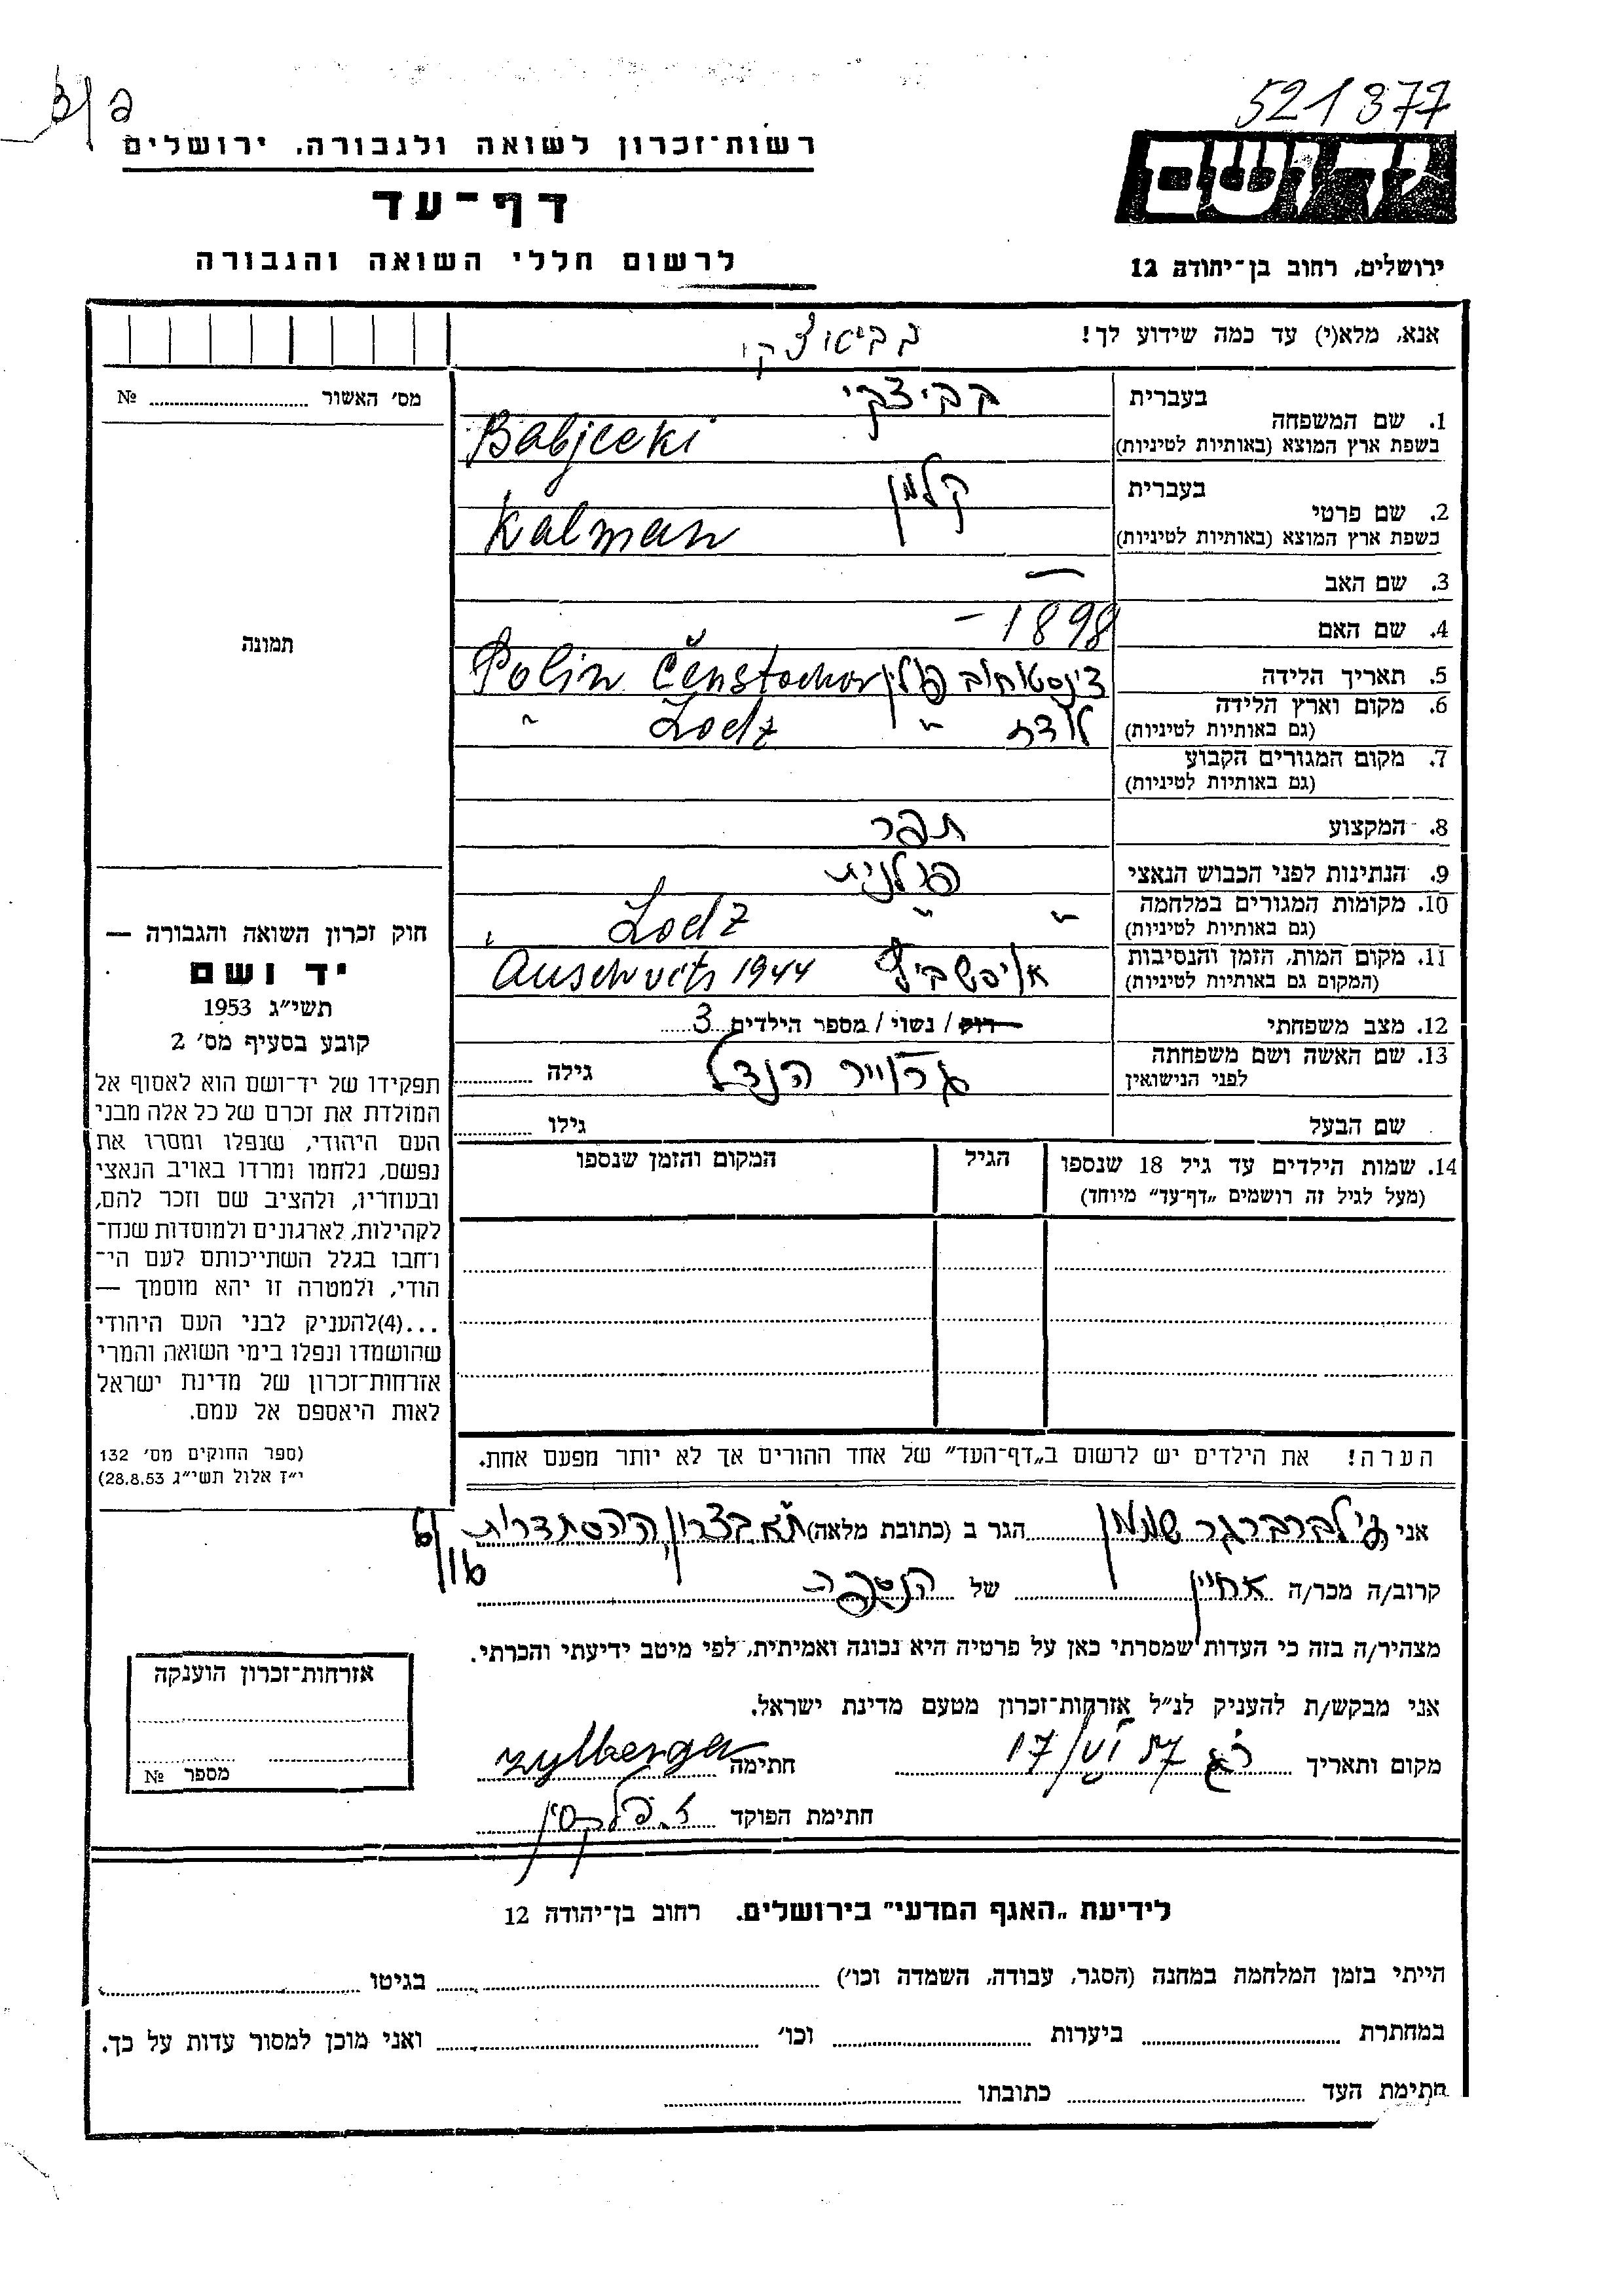 521377
ב/פ
יד ושם
ירושלים, רחוב בן־יהודה 12
רשות־זכרון לשואה ולגבורה, ירושלים
דף־עד
לרשום חללי השואה והגבורה
אנא, מלא(י) עד כמה שידוע לך!
בעברית
1. שם המשפחה
בשפת ארץ המוצא (באותיות לטיניות) Babjceki
בעברית קלמן
2. שם פרטי
בשפת ארץ המוצא (באותיות לטיניות) Kalman
3. שם האב —
4. שם האם
5. תאריך הלידה 1898 –
6. מקום וארץ הלידה צ'נסטוחוב פולין Čenstochov Polin
(גם באותיות לטיניות)
7. מקום המגורים הקבוע לודז " Lodz "
(גם באותיות לטיניות)
8. המקצוע תפר
9. הנתינות לפני הכבוש הנאצי פולנית
10. מקומות המגורים במלחמה " " Lodz
(גם באותיות לטיניות)
11. מקום המות, הזמן והנסיבות Auschvits 1944
(המקום גם באותיות לטיניות)
12. מצב משפחתי רוק / נשוי / מספר הילדים 3
13. שם האשה ושם משפחתה הנדל גילה
לפני הנישואין
שם הבעל גילו
14. שמות הילדים עד גיל 18 שנספו הגיל המקום והזמן שנספו
(מעל לגיל זה רושמים „דף־עד” מיוחד)
הערה! את הילדים יש לרשום ב„דף־העד” של אחד ההורים אך לא יותר מפעם אחת.
מס׳ האשור №
תמונה
חוק זכרון השואה והגבורה —
יד ושם
תשי״ג 1953
קובע בסעיף מס׳ 2
תפקידו של יד־ושם הוא לאסוף אל
המולדת את זכרם של כל אלה מבני
העם היהודי, שנפלו ומסרו את
נפשם, נלחמו ומרדו באויב הנאצי
ובעוזריו, ולהציב שם וזכר להם,
לקהילות, לארגונים ולמוסדות שנח־
רחבו בגלל השתייכותם לעם הי־
הודי, ולמטרה זו יהא מוסמך —
...(4)להעניק לבני העם היהודי
שהושמדו ונפלו בימי השואה והמרי
אזרחות־זכרון של מדינת ישראל
לאות היאספם אל עמם.
(ספר החוקים מס׳ 132
י״ז אלול תשי״ג 28.8.53)
אני זילברברגר הגר ב (כתובת מלאה) ההסתדרות
קרוב/ה מכר/ה אחיין של הנספה
מצהיר/ה בזה כי העדות שמסרתי כאן על פרטיה היא נכונה ואמיתית, לפי מיטב ידיעתי והכרתי.
אני מבקש/ת להעניק לנ״ל אזרחות־זכרון מטעם מדינת ישראל.
מקום ותאריך 17/VI 57 חתימה zylberger
חתימת הפוקד
אזרחות־זכרון הוענקה
מספר №
לידיעת „האגף המדעי” בירושלים. רחוב בן־יהודה 12
הייתי בזמן המלחמה במחנה (הסגר, עבודה, השמדה וכו׳) בגיטו
במחתרת ביערות וכו׳ ואני מוכן למסור עדות על כך.
חתימת העד כתובתו